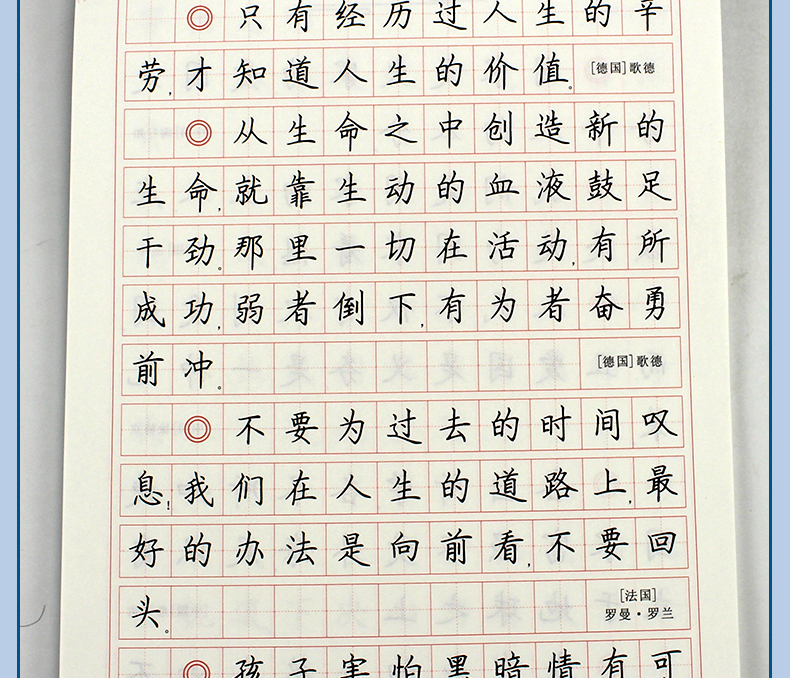 ◎只有经历过人生的辛
劳,才知道人生的价值。[德国]歌德
◎从生命之中创造新的
生命,就靠生动的血液鼓足
干劲。那里一切在活动,有所
成功,弱者倒下,有为者奋勇
前冲。[德国]歌德
◎不要为过去的时间叹
息!我们在人生的道路上,最
好的办法是向前看,不要回
头。[法国]罗曼·罗兰
◎孩子害怕黑暗情有可